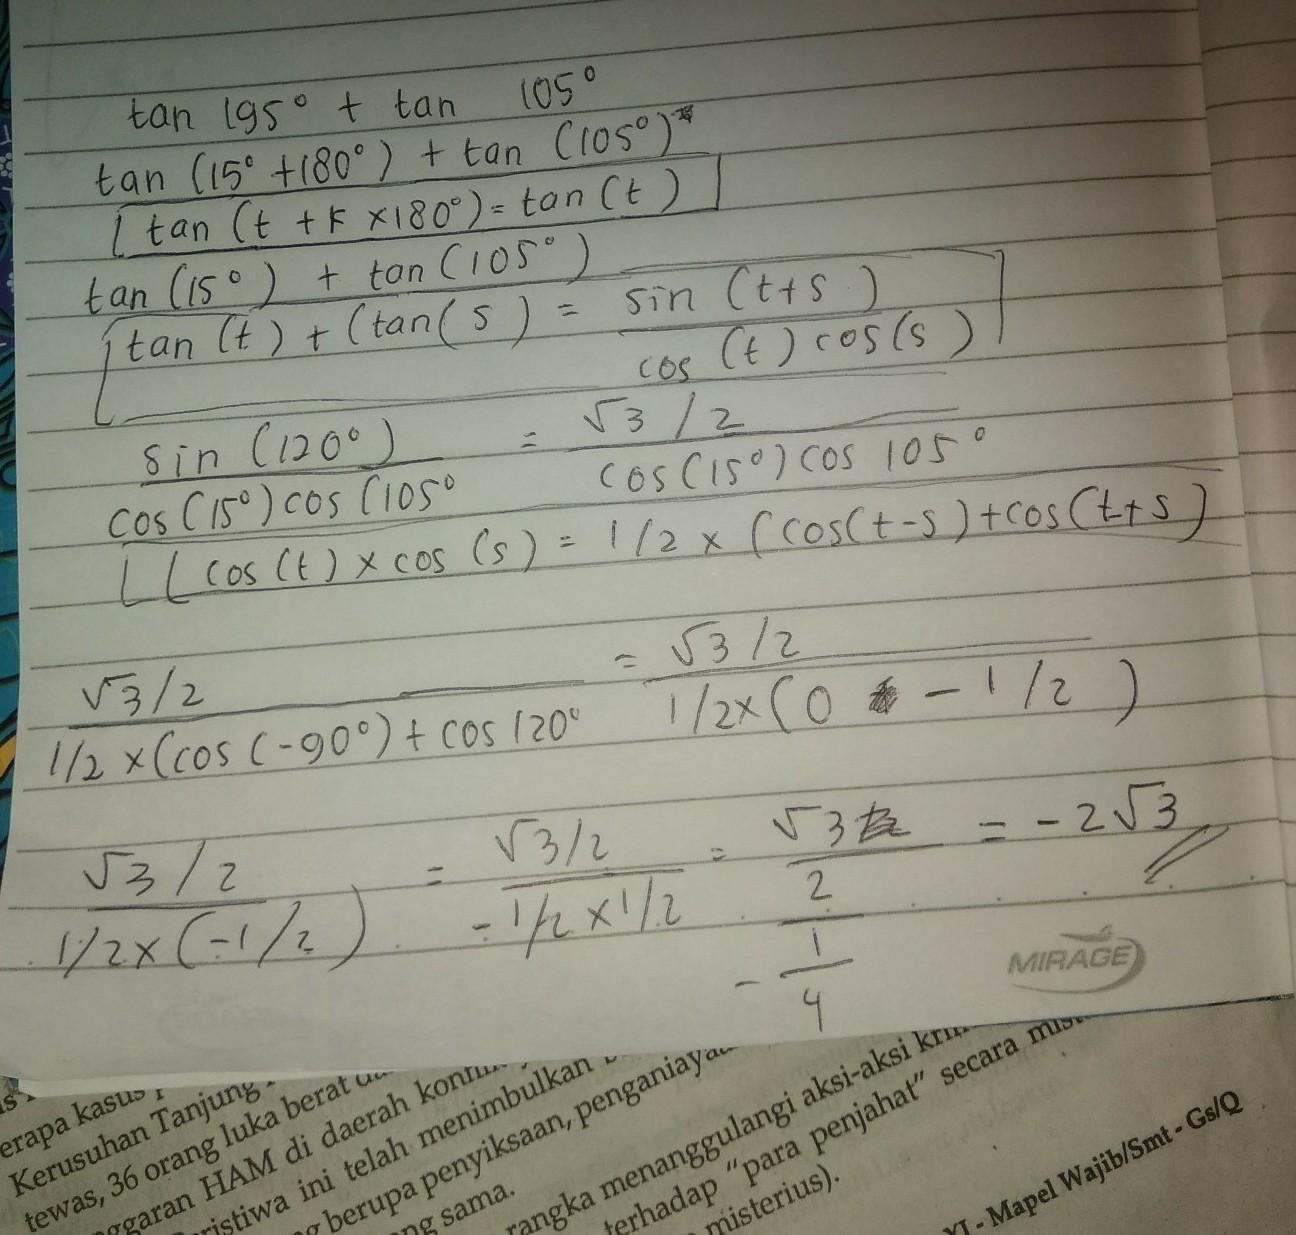 tan 195° + tan 105°
tan (15° +180°) + tan (105°)
[tan (t + k ×180°) = tan (t)]
tan (15°) + tan (105°)
[tan (t) + (tan(s) = sin (t+s)
cos (t) cos(s)]
sin (120°) = √3 / 2
cos (15°) cos (105° cos (15°) cos 105°
[ ( cos (t) × cos (s) = 1/2 × (cos(t-s)+cos(t+s)
√3/2 = √3/2
1/2 ×(cos (-90°) + cos 120° 1/2×(0 - 1/2)
√3/2 = √3/2 = √3 = -2√3
1/2×(-1/2) -1/2×1/2 2
- 1
4
MIRAGE
erapa kasus
Kerusuhan Tanjung
tewas, 36 orang luka berat
ggaran HAM di daerah
ristiwa ini telah menimbulkan
berupa penyiksaan, penganiaya
ng sama.
rangka menanggulangi aksi-aksi
terhadap "para penjahat" secara
misterius).
XI - Mapel Wajib/Smt - Gs/Q